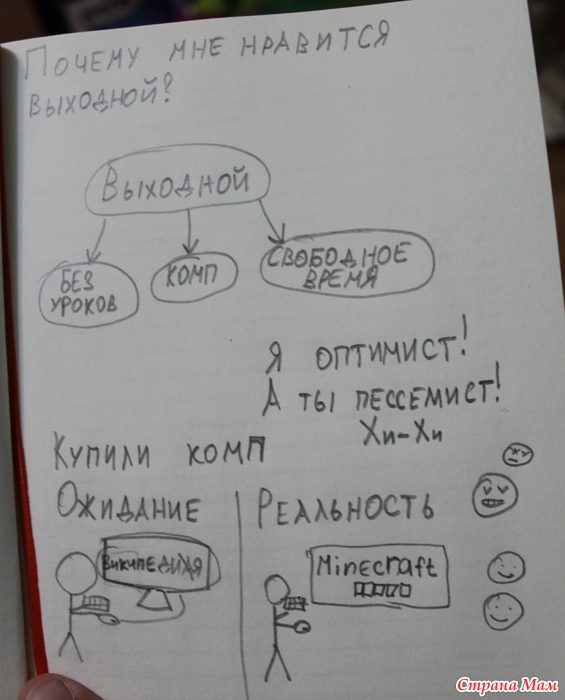 Почему мне нравится
выходной?
Выходной
без
уроков
комп
свободное
время
Я оптимист!
А ты пессемист!
Хи-Хи
Купили комп
Ожидание
Реальность
Википедидя
Minecraft
Страна Мам